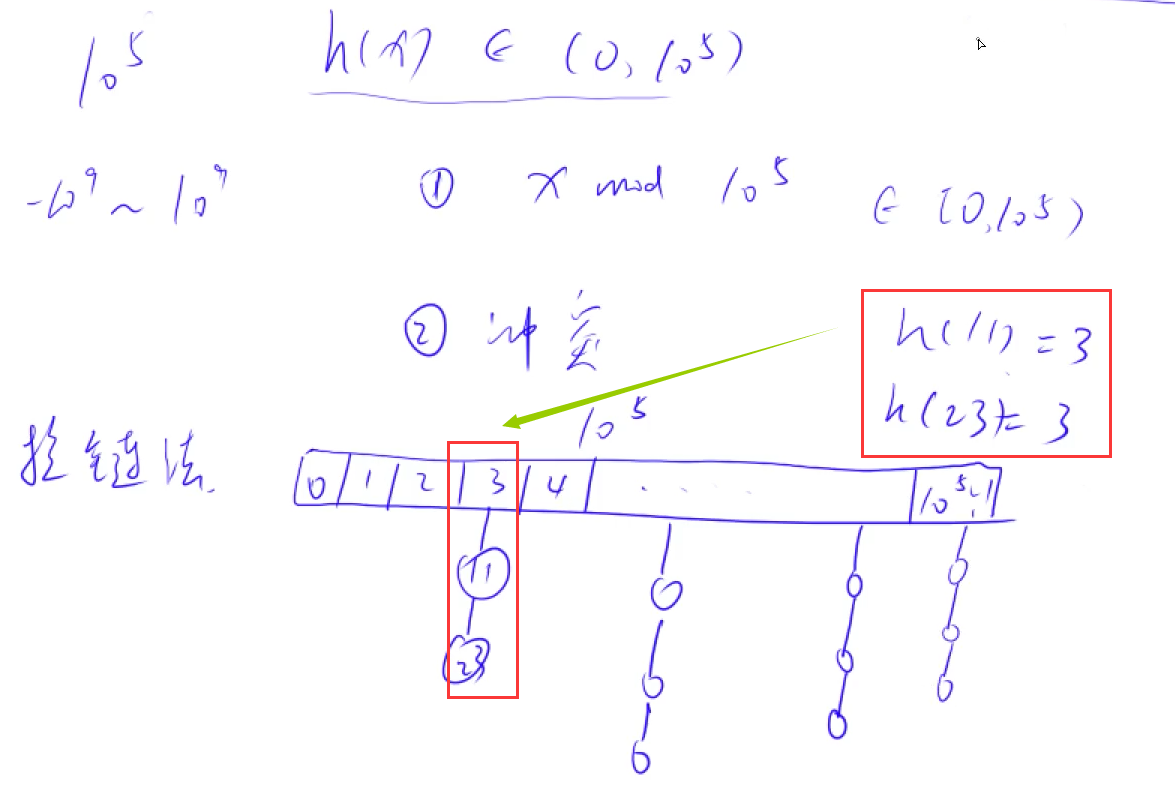 10^5 h(x) ∈ (0, 10^5)
-10^9 ~ 10^9 ① x mod 10^5 ∈ [0, 10^5)
② 冲突
h(11) = 3
h(23) = 3
10^5
拉链法.
0 1 2 3 4 . . . . 10^5-1
11
23